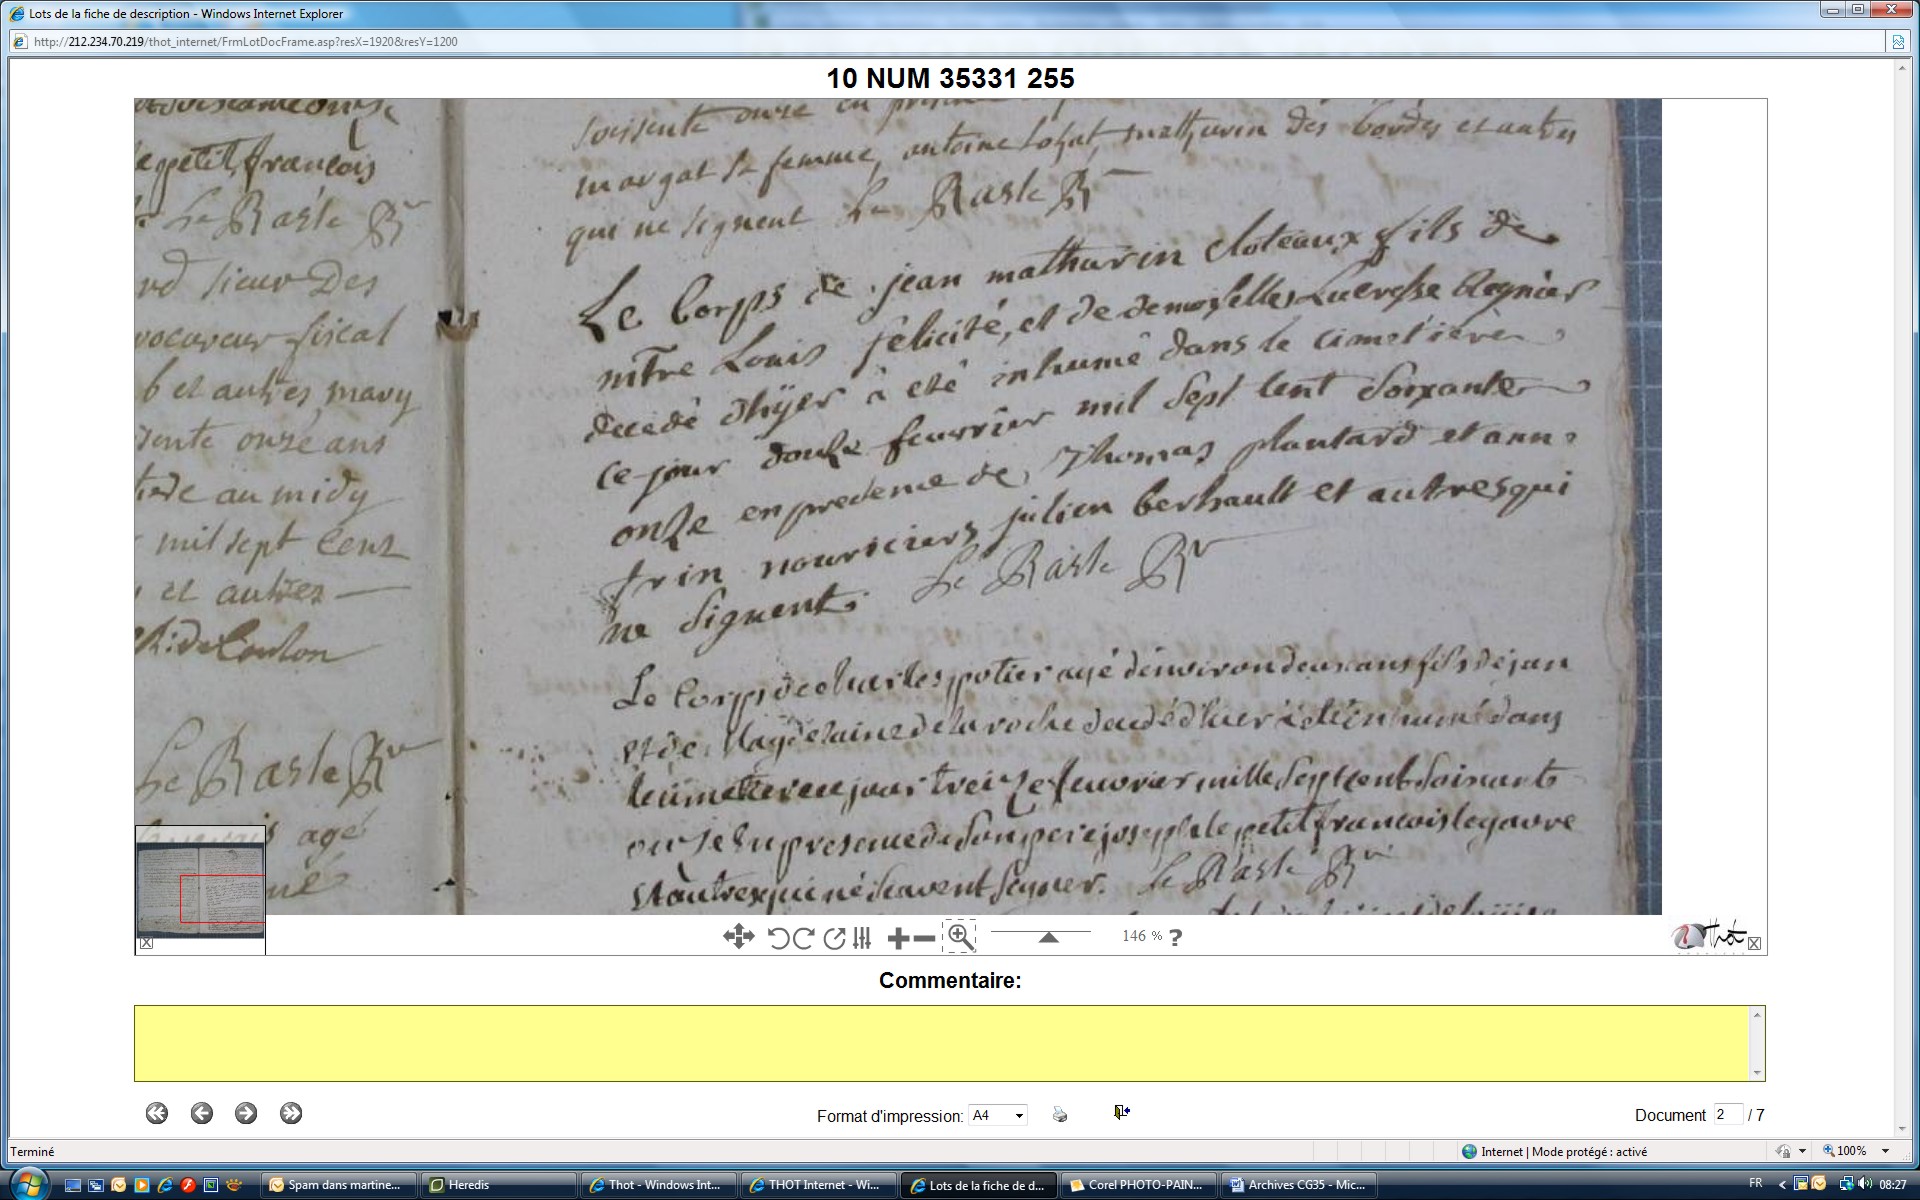 Lots de la fiche de description - Windows Internet Explorer
http://212.234.70.219/thot_internet/FrmLotDocFrame.asp?resX=1920&resY=1200
10 NUM 35331 255
le petit, francois
Le Rasle Rr
rd sieur Des
procureur fiscal
b et autres mavy
sente onze ans
tiere au midy
mil sept cent
et autres
Le Rasle Rr
agé
soissente onze en
margat sa femme, antoine mathurin des bordes et autres
qui ne signent Le Rasle Rr
Le Corps de jean mathurin cloteaux fils de
mtre Louis felicité, et de demoyselle Lucresse Regnier
decedé dhyer a eté inhumé dans le cimetiere
ce jour douze feuvrier mil sept cent soixante
onze en predence de Thomas plantard et ann
frin nouriciers julien berhault et autres qui
ne signent. Le Rasle Rr
Le Corps de charles potier agé denviron deux ans fils de jan
et de Magdelaine de la roche decedé d'hier a eté inhumé dans
le cimetiere ce jour treize feuvrier mille sept cent soixante
onze en presence de son pere joseph le petit francois legavre
et autre qui ne scavent signer. Le Rasle Rr
146 %
?
Thot
Commentaire:
Format d'impression: A4
Document 2 / 7
Terminé
Internet | Mode protégé : activé
100%
Spam dans martine...
Heredis
Thot - Windows Int...
THOT Internet - Wi...
Lots de la fiche de d...
Corel PHOTO-PAIN...
Archives CG35 - Mic...
FR
08:27